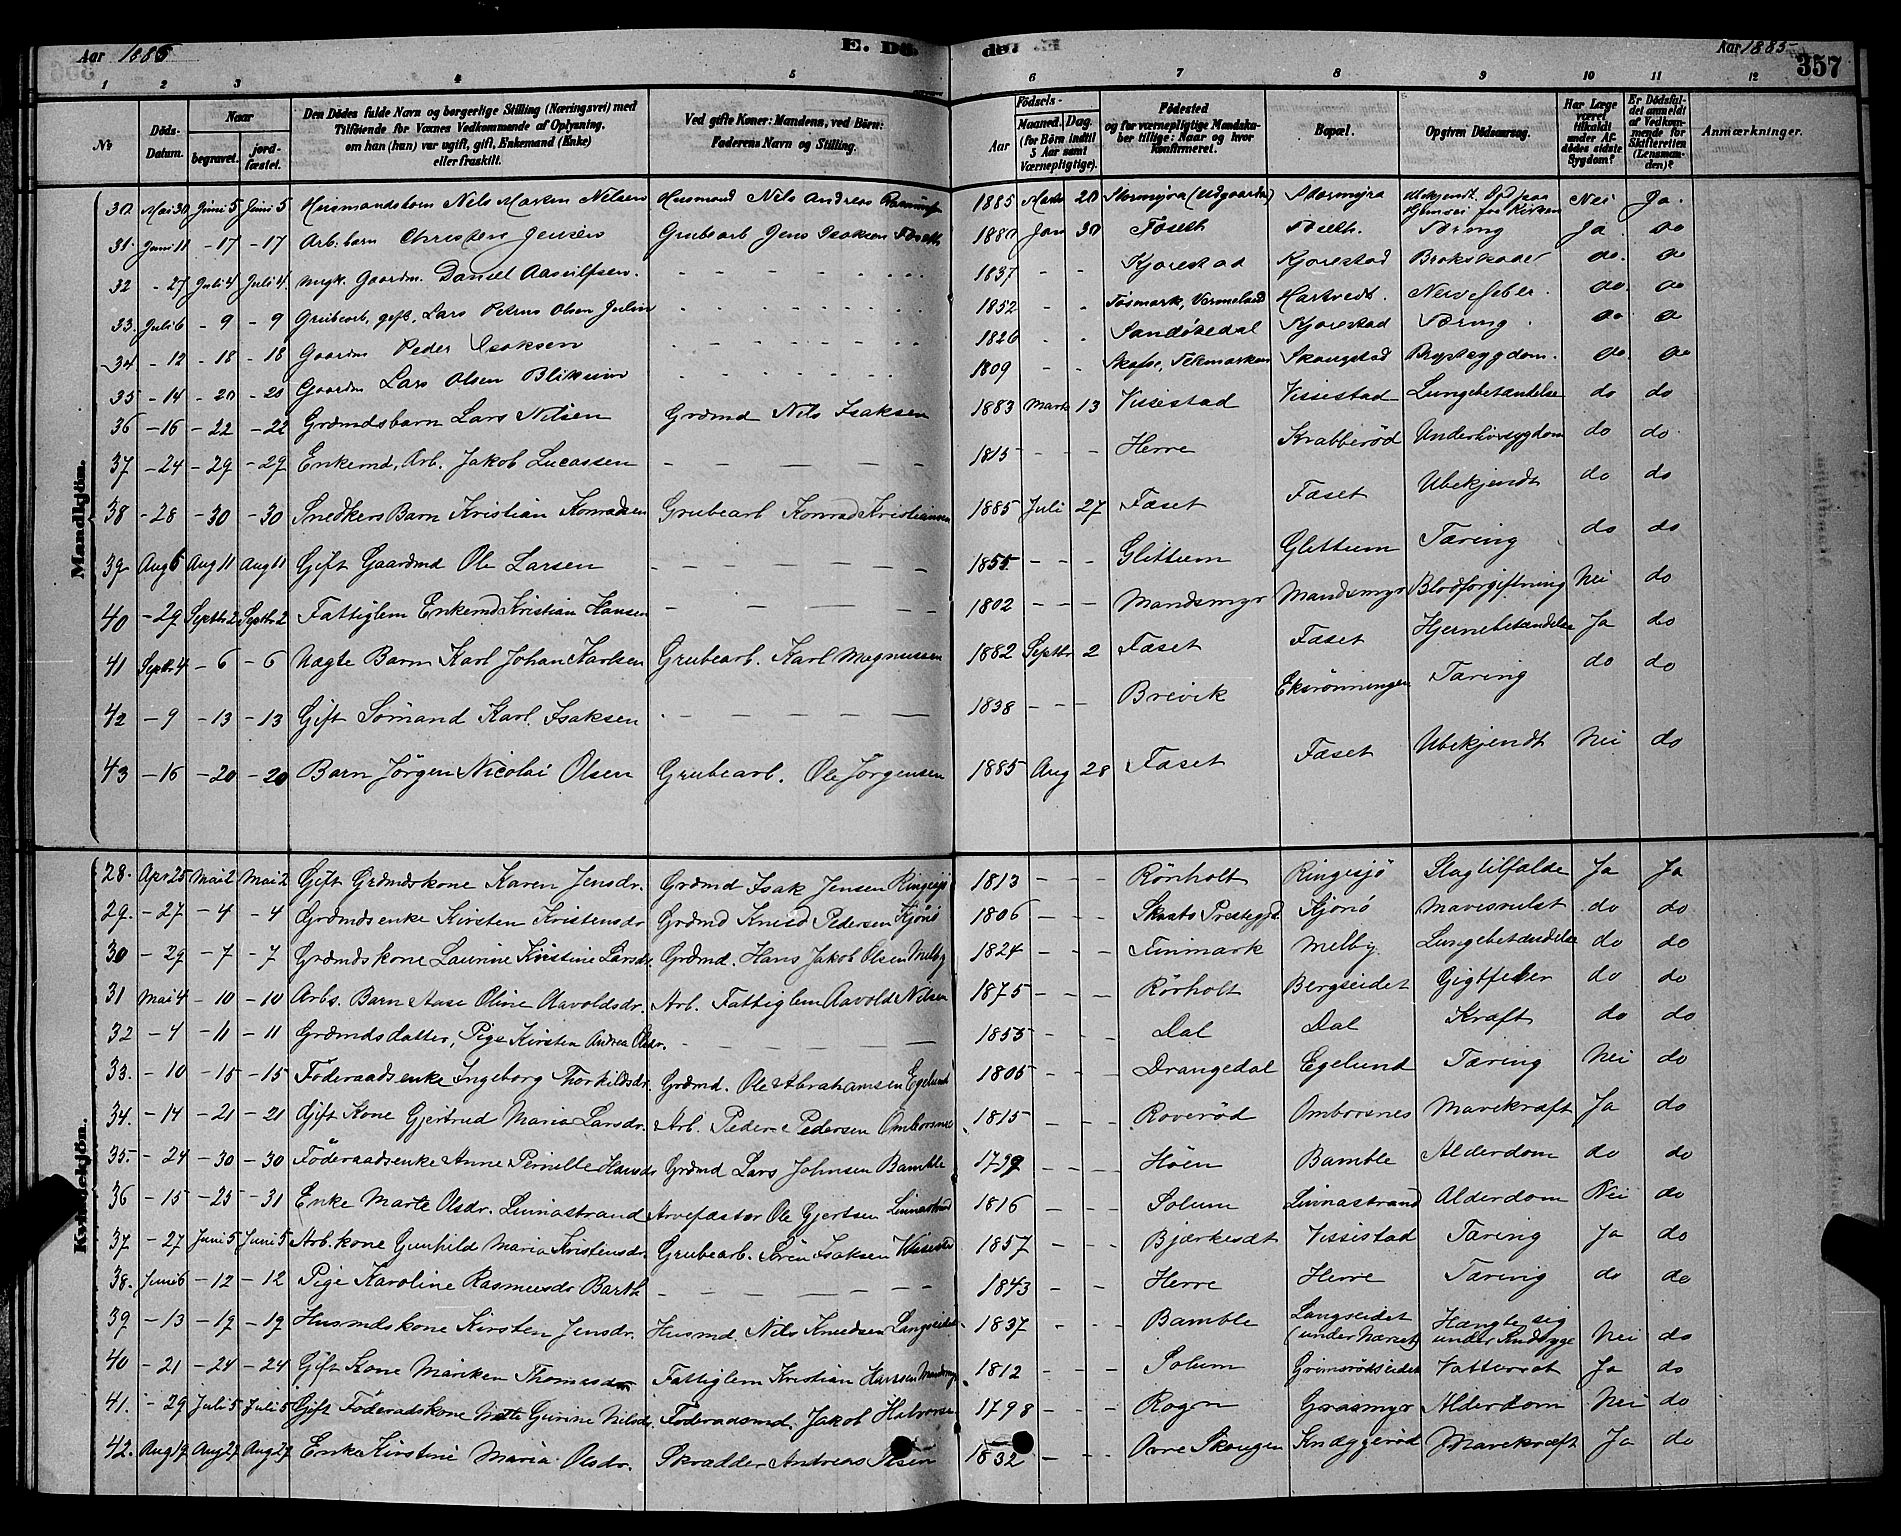 Aar 1885 E. Dö- de. Aar 1885 357
1 2 3 4 5 6 7 8 9 10 11 12
No Döds-Datum. Naar begravet. jord-fæstet. Den Dödes fulde Navn og borgerlige Stilling (Næringsvei) med Tilföiende for Voxnes Vedkommende af Oplysning, om han (hun) var ugift, gift, Enkemand (Enke) eller fraskilt. Ved gifte Koner: Mandens, ved Börn: Faderens Navn og Stilling. Födsels- Aar Maaned. Dag. (for Börn indtil 5 Aar samt Værnepligtige). Födested og for værnepligtige Mandska-ber tillige: Naar og hvor konfirmeret. Bopæl. Opgiven Dödsaarsag. Har Læge været tilkaldt under Af-dödes sidste Sygdom? Er Dödsfal-det anmeldt af Vedkom-mende for Skifteretten (Lensman-den)? Anmærkninger.
Mandkjön.
30 Mai 30 Juni 5 Juni 5 Husmandsbarn Nils Martin Nilsen Husmand Nils Andreas 1885 Marts 20 Stormyra Stormyra Ubekjendt. Nei Ja.
31. Juni 11 - 17 - 17 Arb. barn Christen Jensen Grubearb Jens Isaksen Foseth 1880 Jan 30 Foseth Foseth. Tæring Ja do
32 - 27 Juli 4 Juli 4 ungk. Gaardm. Daniel Aasulfsen. 1837 - - Kjørestad Kjørestad Brokskade do. do
33. Juli 6 - 9 - 9 Grubearb, gift, Lars Petrus Olsen Julin 1852 - - Fösmark, Vermeland Hartvedt. Nervefeber. do. do
34 - 12 - 18 - 18 Gaardm Peder Isaksen 1826 - - Sandökedal Kjørestad Tæring. do do
35 - 14 - 20 - 20 Gaardm Lars Olsen Blikum 1809 - - Skafse, Telemarken Skougstad Brystsygdom. do. do
36 - 16 - 22 - 22 Grdmdsbarn Lars Nilsen Grdmd Nils Isaksen 1883 Marts 13 Vissestad Vissestad Lungebetændelse do do
37 - 24 - 29 - 29 Enkemd, Arb. Jakob Lucassen 1815 - - - Herre Krabberød Underlivssygdom do do.
38 - 28 - 30 - 30 Snedkers Barn Kristian Konradsen Grubearb Konrad Kristiansen 1885 Juli 27 Fæset Fæset Ubekjendt do do
39 Aug 6 Aug 11 Aug 11 Gift Gaardmd Ole Larsen 1855 - - - Glittum Glittum Tæring do do
40 - 29 Septbr 2 Septbr 2 Fattiglem Enkemd Kristian Hansen 1802 - - - Mandsmyr Mandsmyr Blodforgiftning Nei do
41 Septbr 4 - 6 - 6 Uægte Barn Karl Johan Karlsen Grubearb. Karl Magnussen 1882 Septbr 2 Fæset Fæset Hjernebetændelse Ja do
42 - 9 - 13 - 13 Gift Sømand Karl Isaksen 1838 - - - Brevik Eksrönningen Tæring do do
43 - 16 - 20 - 20 Barn Jörgen Nicolai Olsen Grubearb. Ole Jörgensen 1885 Aug 28 Fæset Fæset Ubekjendt Nei do
Kvindekjön.
28. Apr 25 Mai 2 Mai 2 Gift Grdmdskone Karen Jensdr. Grdmd Isak Jensen Ringesjø 1813 - - - Rönholt Ringesjö Slagtilfælde Ja Ja
29. - 27 - 4 - 4 Grdmdsenke Kirsten Kristensdr Grdmd Knud Pedersen Kjönö 1806 - - - Skaatö Prestegjd. Kjönö Mavesvulst do do
30 - 29 - 7 - 7 Grdmdskone Laurine Kirstine Larsdr. Grdmd. Hans Jakob Olsen Melby 1824 - - - Finmark Melby Lungebetændelse do do
31 Mai 4 - 10 - 10 Arbs. Barn Aase Oline Aavoldsdr. Arb. Fattiglem Aavold Nilsen 1875 - - - Rörholt Bergseidet Gigtfeber do do
32 - 4 - 11 - 11 Grdmdsdatter, Pige Kirsten Andrea Olsdr. 1855 Dal Dal Kræft do do
33. - 10 - 15 - 15 Föderaadsenke Ingeborg Thorkildsdr. Grdmd. Ole Abrahamsen Egelund 1805 - - - Drangedal Egelund Tæring Nei do
34. - 14 - 21 - 21 Gift Kone Gjertrud Maria Larsdr. Arb. Peder Pedersen Omborsnes 1815 - - - Roverød Omborsnes Mavekræft Ja do
35. - 24 - 30 - 30 Föderaadsenke Anne Pernille Hansdr Grdmd Lars Johnsen Bamble 1799 - - - Höen Bamble Alderdom do do
36 - 15 - 25 - 31 Enke Marte Olsdr. Linnastrand Arvefæster Ole Gjertsen Linnastrand 1816 - - - Solum Linnastrand Alderdom Nei do
37 - 27 Juni 5 Juni 5 Arb. kone Gunhild Maria Kristensdr. Grubearb. Sören Isaksen Vissestad 1857 - - Bjærkesæt Vissestad Tæring Ja do
38. Juni 6 - 12 - 12 Pige Karoline Rasmusdr Barth 1843 - - Herre Herre Tæring do do
39 - 13 - 19 - 19 Husmdskone Kirsten Jensdr. Husmd. Nils Knudsen Langseidet 1837 - - Bamble Langseidet (under Næset) Hængte sig under Sindsyge Nei do
40 - 21 - 24 - 24 Gift Kone Mariken Thomasdr Fattiglem Kristian Hansen Mandsmyr 1812 - - Solum Grimsrödseidet Vattersot Ja do
41. - 29 Juli 5 Juli 5 Gift Föderadskone Mette Gurine Nilsdr. Föderaadsmd. Jakob Halvorsen 1798 - - Rogn Grasmyr Alderdom Nei do
42. Aug 19 Aug 27 Aug 27 Enke Kirstine Maria Olsdr. Skrædder Andreas Olsen 1832 - - Øvre Skougen Knæggerød Mavekræft Ja do